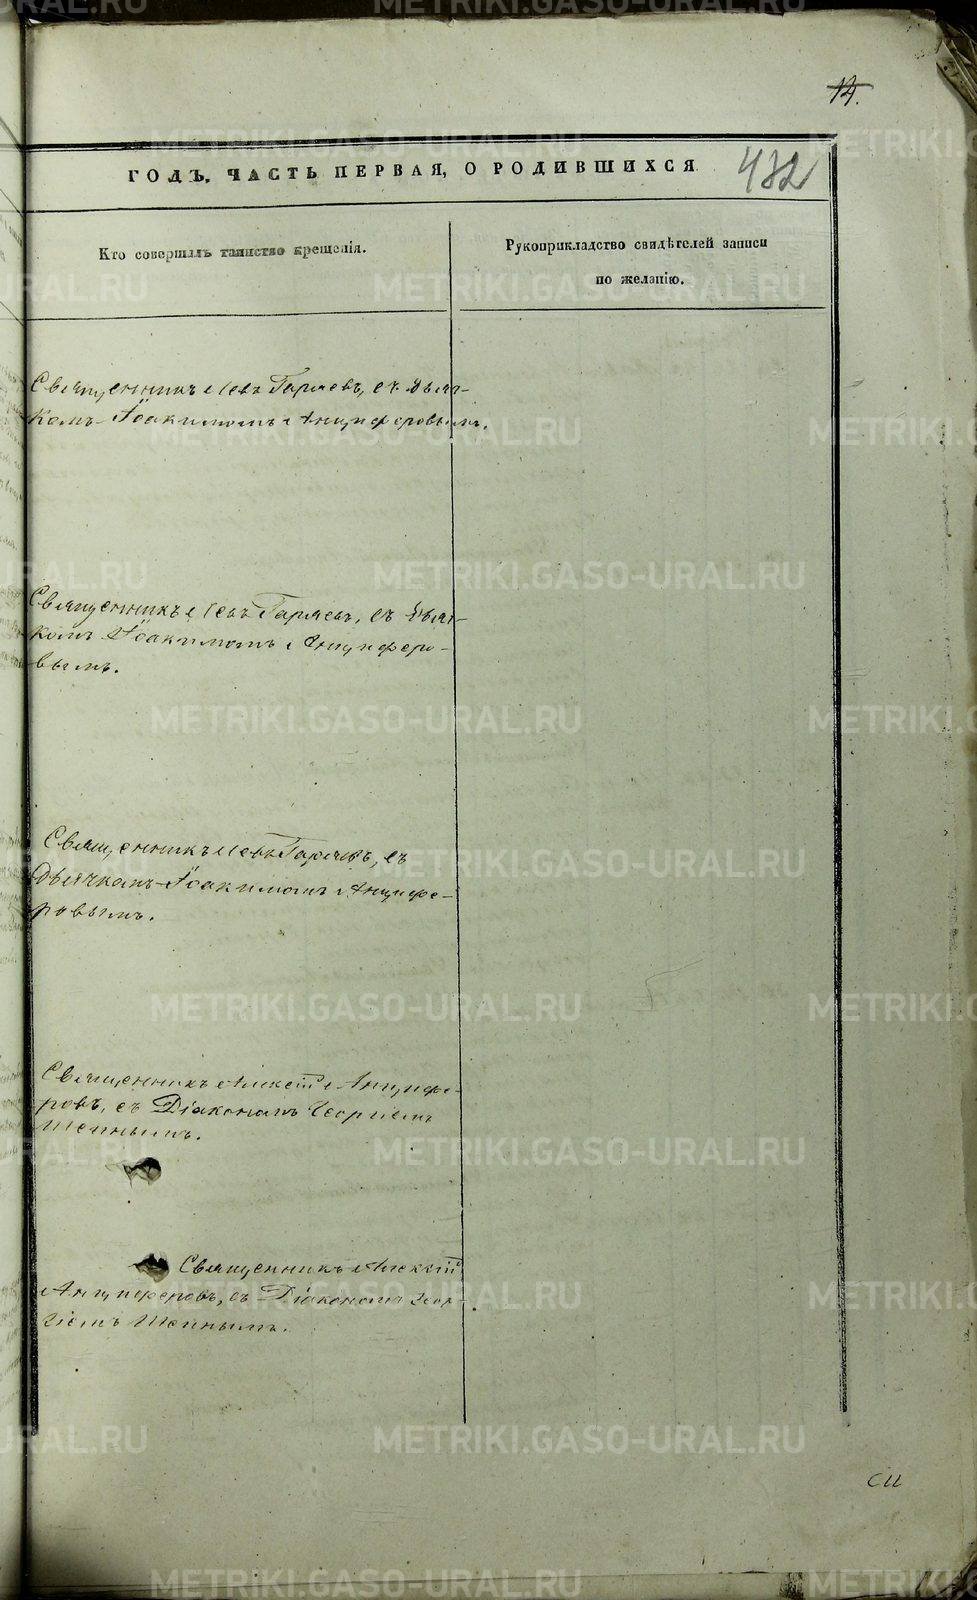 14.
ГОДЪ, ЧАСТЬ ПЕРВАЯ, О РОДИВШИХСЯ
432
Кто совершилъ таинство крещенія.
Рукоприкладство свидѣтелей записи
по желанію.
Священникъ Левъ Гаряевъ, съ дьяч-
комъ Іоакимомъ Анциферовымъ.
Священникъ Левъ Гаряевъ, съ дьяч-
комъ Іоакимомъ Анциферо-
вымъ.
Священникъ Левъ Гаряевъ, съ
дьячкомъ Іоакимомъ Анцифе-
ровымъ.
Священникъ Алексій Анцифе-
ровъ, съ Діакономъ Георгіемъ
Священникъ Алексій
Анциферовъ, съ Діакономъ Геор-
гіемъ
METRIKI.GASO-URAL.RU